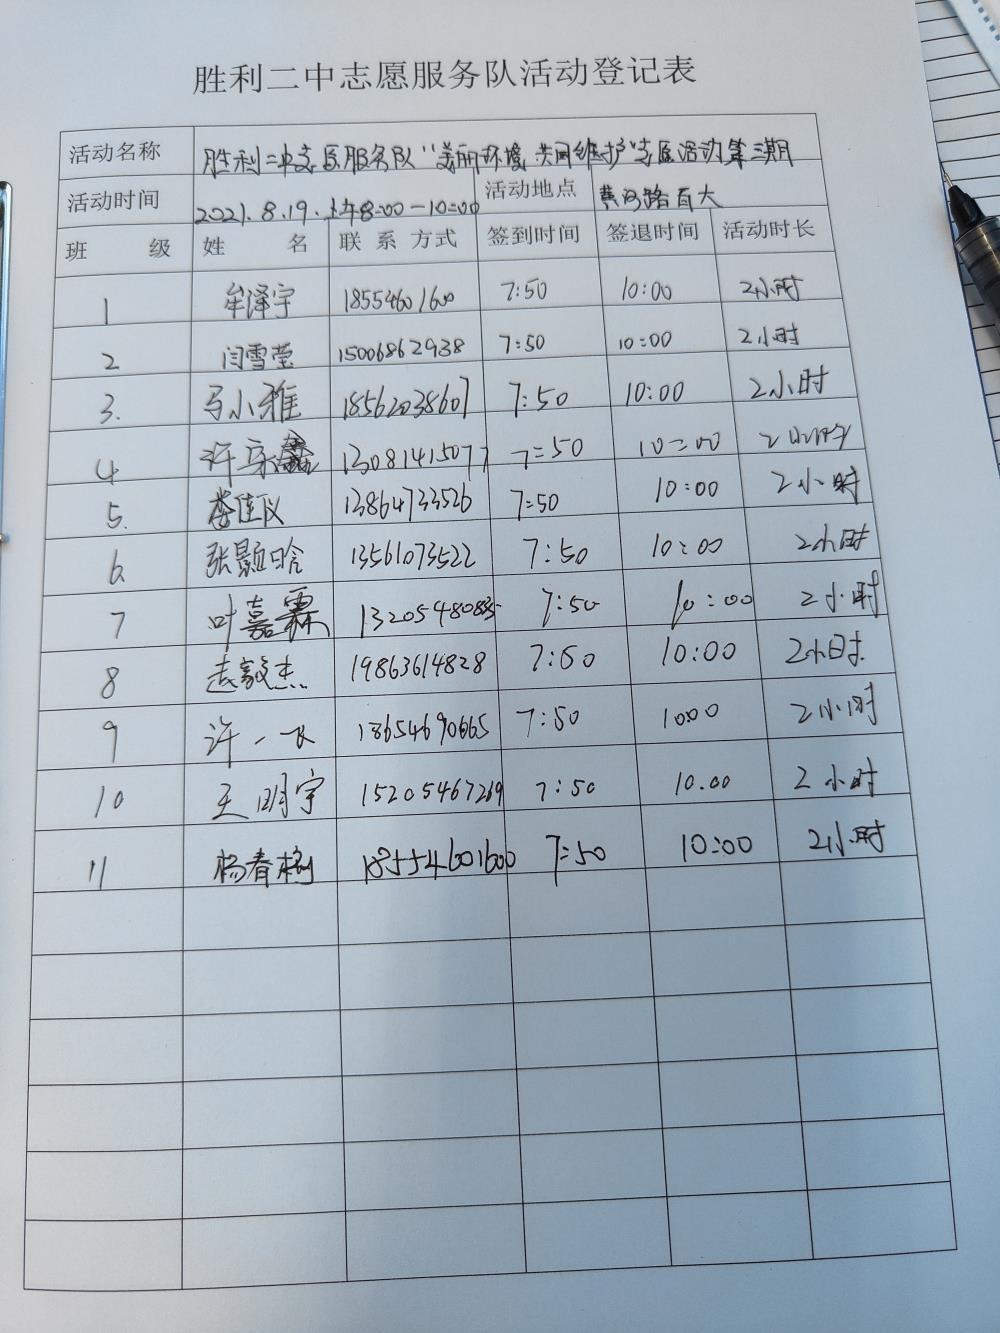 胜利二中志愿服务队活动登记表
活动名称 胜利二中志愿服务队“美丽环境 共同维护”志愿活动第三期
活动时间 2021.8.19.上午8:00-10:00 活动地点 黄河路百大
班 级 姓 名 联系方式 签到时间 签退时间 活动时长
1 牟泽宇 18554601600 7:50 10:00 2小时
2 闫雪莹 15006862938 7:50 10:00 2小时
3. 马小雅 18562038607 7:50 10:00 2小时
4 许 鑫 13081415077 7:50 10:00 2小时
5. 娄佳仪 13864733526 7:50 10:00 2小时
6. 张颢晗 13561073522 7:50 10:00 2小时
7 叶嘉霖 7:50 10:00 2小时
8 袁毅杰 19863614828 7:50 10:00 2小时
9 许一 18654690665 7:50 1000 2小时
10 王明宇 15205467269 7:50 10.00 2小时
11 杨春 18554601600 7:50 10:00 2小时